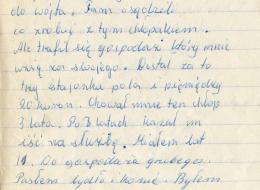 do wójta. Tam osądzili
co zrobić z tym chłopakiem.
Ale trafił się gospodarz który mnie
wziął za swojego. Dostał za to
trzy stajonka pola i pieniędzy
20 koron. Chował mnie ten chłop
3 lata. Po 3 latach kazał mi
iść na służbę. Miałem lat
11. Do gospodarza grubego.
Pasłem bydło i konie. Byłem